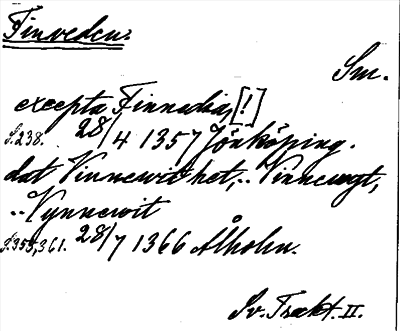 Finveden.
Sm.
excepta Finnedia, [!]
S.238. 28/4 1357 Jönköping.
dat Vinnewidhet, .. Vinnewyt,
.. Vynnewit
S.355,361. 28/7 1366 Ålholm.
Sv. Trakt. II.